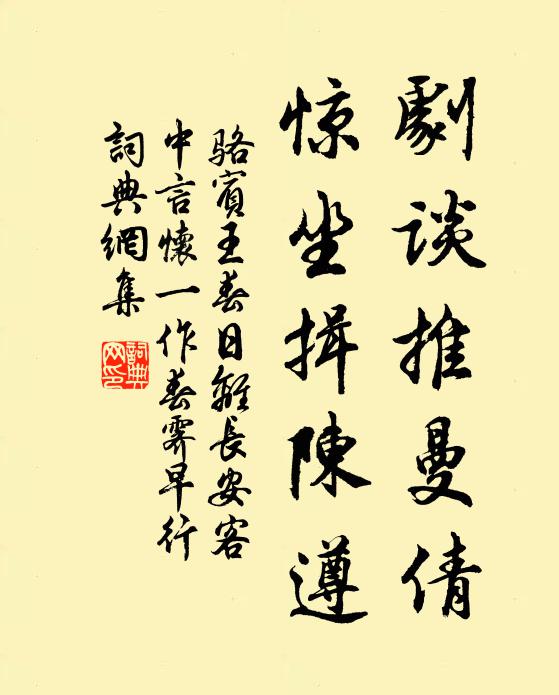 劇談推曼倩
惊坐揖陳遵
駱賓王春日離長安客
中言懷一作春霽早行
詞典網集
詞典
网印